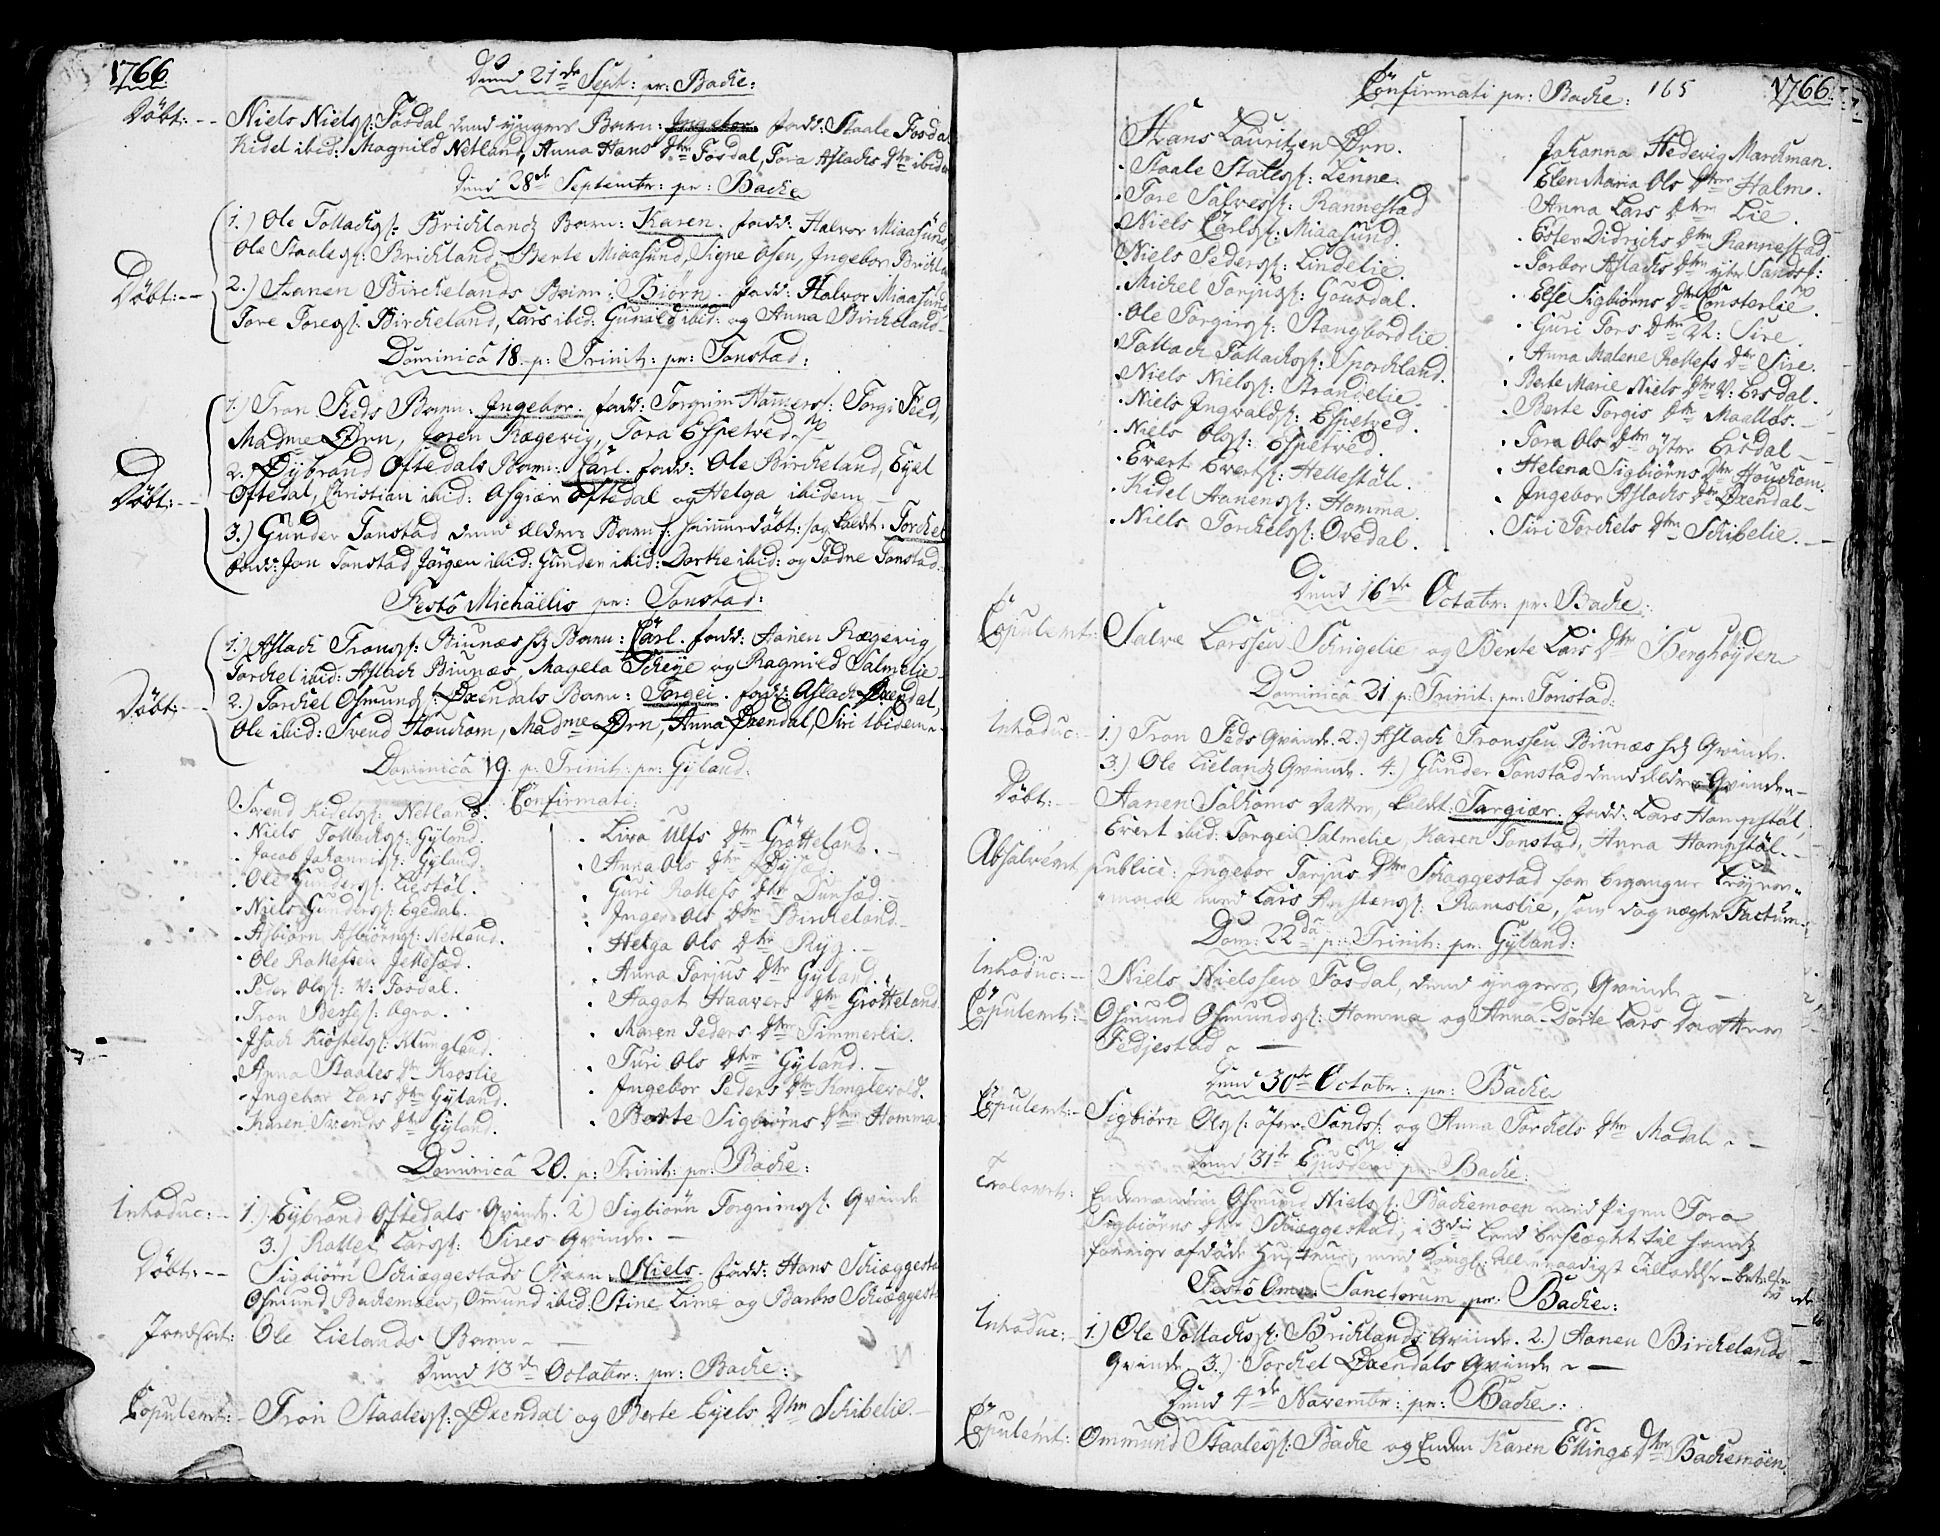 1766
Dend 21de Sept: pr: Backe:
Döbt: Niels Niels: Fosdal dend yngers Barn: Ingebor. fadd: Staale Fosdal
Kidel ibid: Magnild Netland, Anna Hans Dtr Fosdal, Tora Aslachs Dtr ibidem
Dend 28de Septembr: pr: Backe
1.) Ole Tollachs: Bricklands Barn: Karen. fadd: Halvor Miaasund
Ole Staales: Brickland, Berte Miaasund, Signe Osen, Ingebor Brickland
Döbt: 2.) Aanen Birckelands Barn: Biörn. fadd: Halvor Miaasund
Tore Tores: Birckeland, Lars ibid: Gunild ibid: og Anna Birckeland
Dominica 18. p: Trinit: pr: Tonstad:
1.) Tron Feeds Barn: Ingebor. fadd: Torgrim Hamers: Torgi Feed,
Madme Örn, Joren Rægevig, Tora Espetved.
Döbt: 2. Eybrand Oftedals Barn: Carl. fadd: Ole Birckeland, Eyel
Oftedal, Christian ibid: Asgiær Oftedal og Helga ibidem
3.) Gunder Tonstad dend Eldres Barn hiemmedöbt: og kaldt: Torckel
fadd: Jon Tonstad Jörgen ibid: Gunder ibid: Dorthe ibid: og Todne Tonstad.
Festo Michaëlis pr: Tonstad:
1.) Aslach Trons: Biunæs Barn: Carl. fadd: Aanen Rægevig
Torckel ibid: Aslach Biunæs, Magela Scheye og Ragnild Salmelie
Döbt: 2.) Torckel Osmunds: Öxendals Barn: Torgei. fadd: Aslach Öxendal,
Ole ibid: Svend Houckom, Madme Örn, Anna Öxendal, Siri ibidem
Dominica 19. p: Trinit: pr: Gyland:
Confirmati:
Svend Kidels: Netland.
Niels Tollachs: Gyland.
Jacob Johannis: Gyland.
Ole Gunders: Liestöl.
Niels Gunders: Egedal.
Asbiörn Asbiörns: Netland.
Ole Rollefsen Jellesæd.
Peder Ols: V: Fosdal.
Tron Besses: Ogra.
Isach Kiöstels: Klungland.
Anna Staales Dtr Kroslie
Ingebor Lars Dtr Gyland.
Karen Svends Dtr Gyland.
Liva Ulfs Dtr Grötteland.
Anna Ols Dtr
Guri Rollefs Dtr Dunsæd.
Inger Ols Dtr Birckeland
Helga Ols Dtr Ryg.
Anna Torjus Dtr Gyland.
Aagat Haavers Dtr Grötteland
Maren Peders Dtr Timmerlie.
Turi Ols Dtr Gyland.
Ingebor Peders Dtr Konglevold.
Berte Sigbiörns Dtr Homma
Dominica 20. p: Trinit: pr: Backe:
Introduc: 1.) Eybrand Oftedals Qvinde. 2.) Sigbiörn Torgrims: Qvinde
3.) Rollef Lars: Sires Qvinde.
Döbt: Sigbiörn Schiæggestads Barn: Niels. fadd: Hans Schiæggestad
Osmund Backemoen, Ommund ibid: Stine Lime og Barbro Schiæggestad
Jordsat: Ole Lielands Barn
Dend 13de Octobr: pr: Backe:
Copuleret: Tron Staales: Öxendal og Berte Eyels Dtr Schibelie.
Confirmati pr: Backe: 165 1766
Hans Lauritzen Örn.
Staale Staales: Lenne.
Tore Salves: Rannestad
Niels Carls: Miaasund.
Niels Peders: Lindelie.
Michel Torjus: Gousdal.
Ole Torgers: Stangbordlie.
Tollach Tollachs: Sporckland.
Niels Niels: Strandelie
Niels Ingvalds: Espetved.
Niels Ols: Espetved.
Evert Everts: Hellestöl.
Kidel Aanens: Homma
Niels Torckels: Ovedal.
Johanna Hedevig Marckman.
Elen Maria Ols Dtr Halm.
Anna Lars Dtr Lie.
Ester Didrichs Dtr Rannestad
Torbor Aslachs Dtr yter Sands:
Else Sigbiörns Dtr Consterlie.
Guri Tors Dtr N: Sire.
Anna Malene Rollefs Dtr Sire.
Berte Marie Niels Dtr V: Ersdal.
Berte Torgis Dtr Moallös.
Tora Ols Dtr öster Ersdal
Helena Sigbiörns Dtr Houckom.
Ingebor Aslachs Dtr Öxendal
Siri Torckels Dtr Schibelie.
Dend 16de Octobr: pr: Backe:
Copuleret: Salve Larssen Schregelie og Berte Lars Dtr Berghöyden
Dominica 21 p: Trinit: pr: Tonstad:
Introduc: 1.) Tron Feds Qvinde. 2.) Aslach Tronssen Biunæs Qvinde.
3.) Ole Lielands Qvinde. 4.) Gunder Tonstad dend Eldres Qvinde
Döbt: Aanen Solhoms Datter, kaldt: Torgiær. fadd: Lars Hompstöl,
Evert ibid: Torgei Salmelie, Karen Tonstad, Anna Hompstöl.
Absolveret publice: Ingebor Torjus Dtr Schaggestad for begangne Leyer-
maal med Lars Ramslie, som dog nægter Factum
Dom: 22da p: Trinit: pr: Gyland:
Introduc: Niels Nielssen Fosdal, dend yngers Qvinde
Copuleret: Osmund Osmunds: Homma og Anna Dorte Lars Daatter
Fedjestad
Dend 30te Octobr: pr: Backe
Copuleret: Sigbiörn Ols: öfre Sands: og Anna Torckels Dtr Modal
Dend 31te Ejusdem pr: Backe:
Trolovet: Enckemanden Osmund Niels: Backemoen med Pigen Tora
Sigbiörns Dtr Schiæggestad, i 3die Leed beslægtet til hans
forrige afdöde Hustrue, med Kongl: Allernaadigst Tilladelse
Festo Omn: Sanctorum pr: Backe:
Introduc: 1.) Ole Tollachs: Bricklands Qvinde. 2.) Aanen Birckelands
Qvinde 3.) Torckel Öxendals Qvinde
Dend 4de Novembr: pr: Backe:
Copuleret: Ommund Staales: Backe og Enken Karen Ellings Dtr Backemoen.